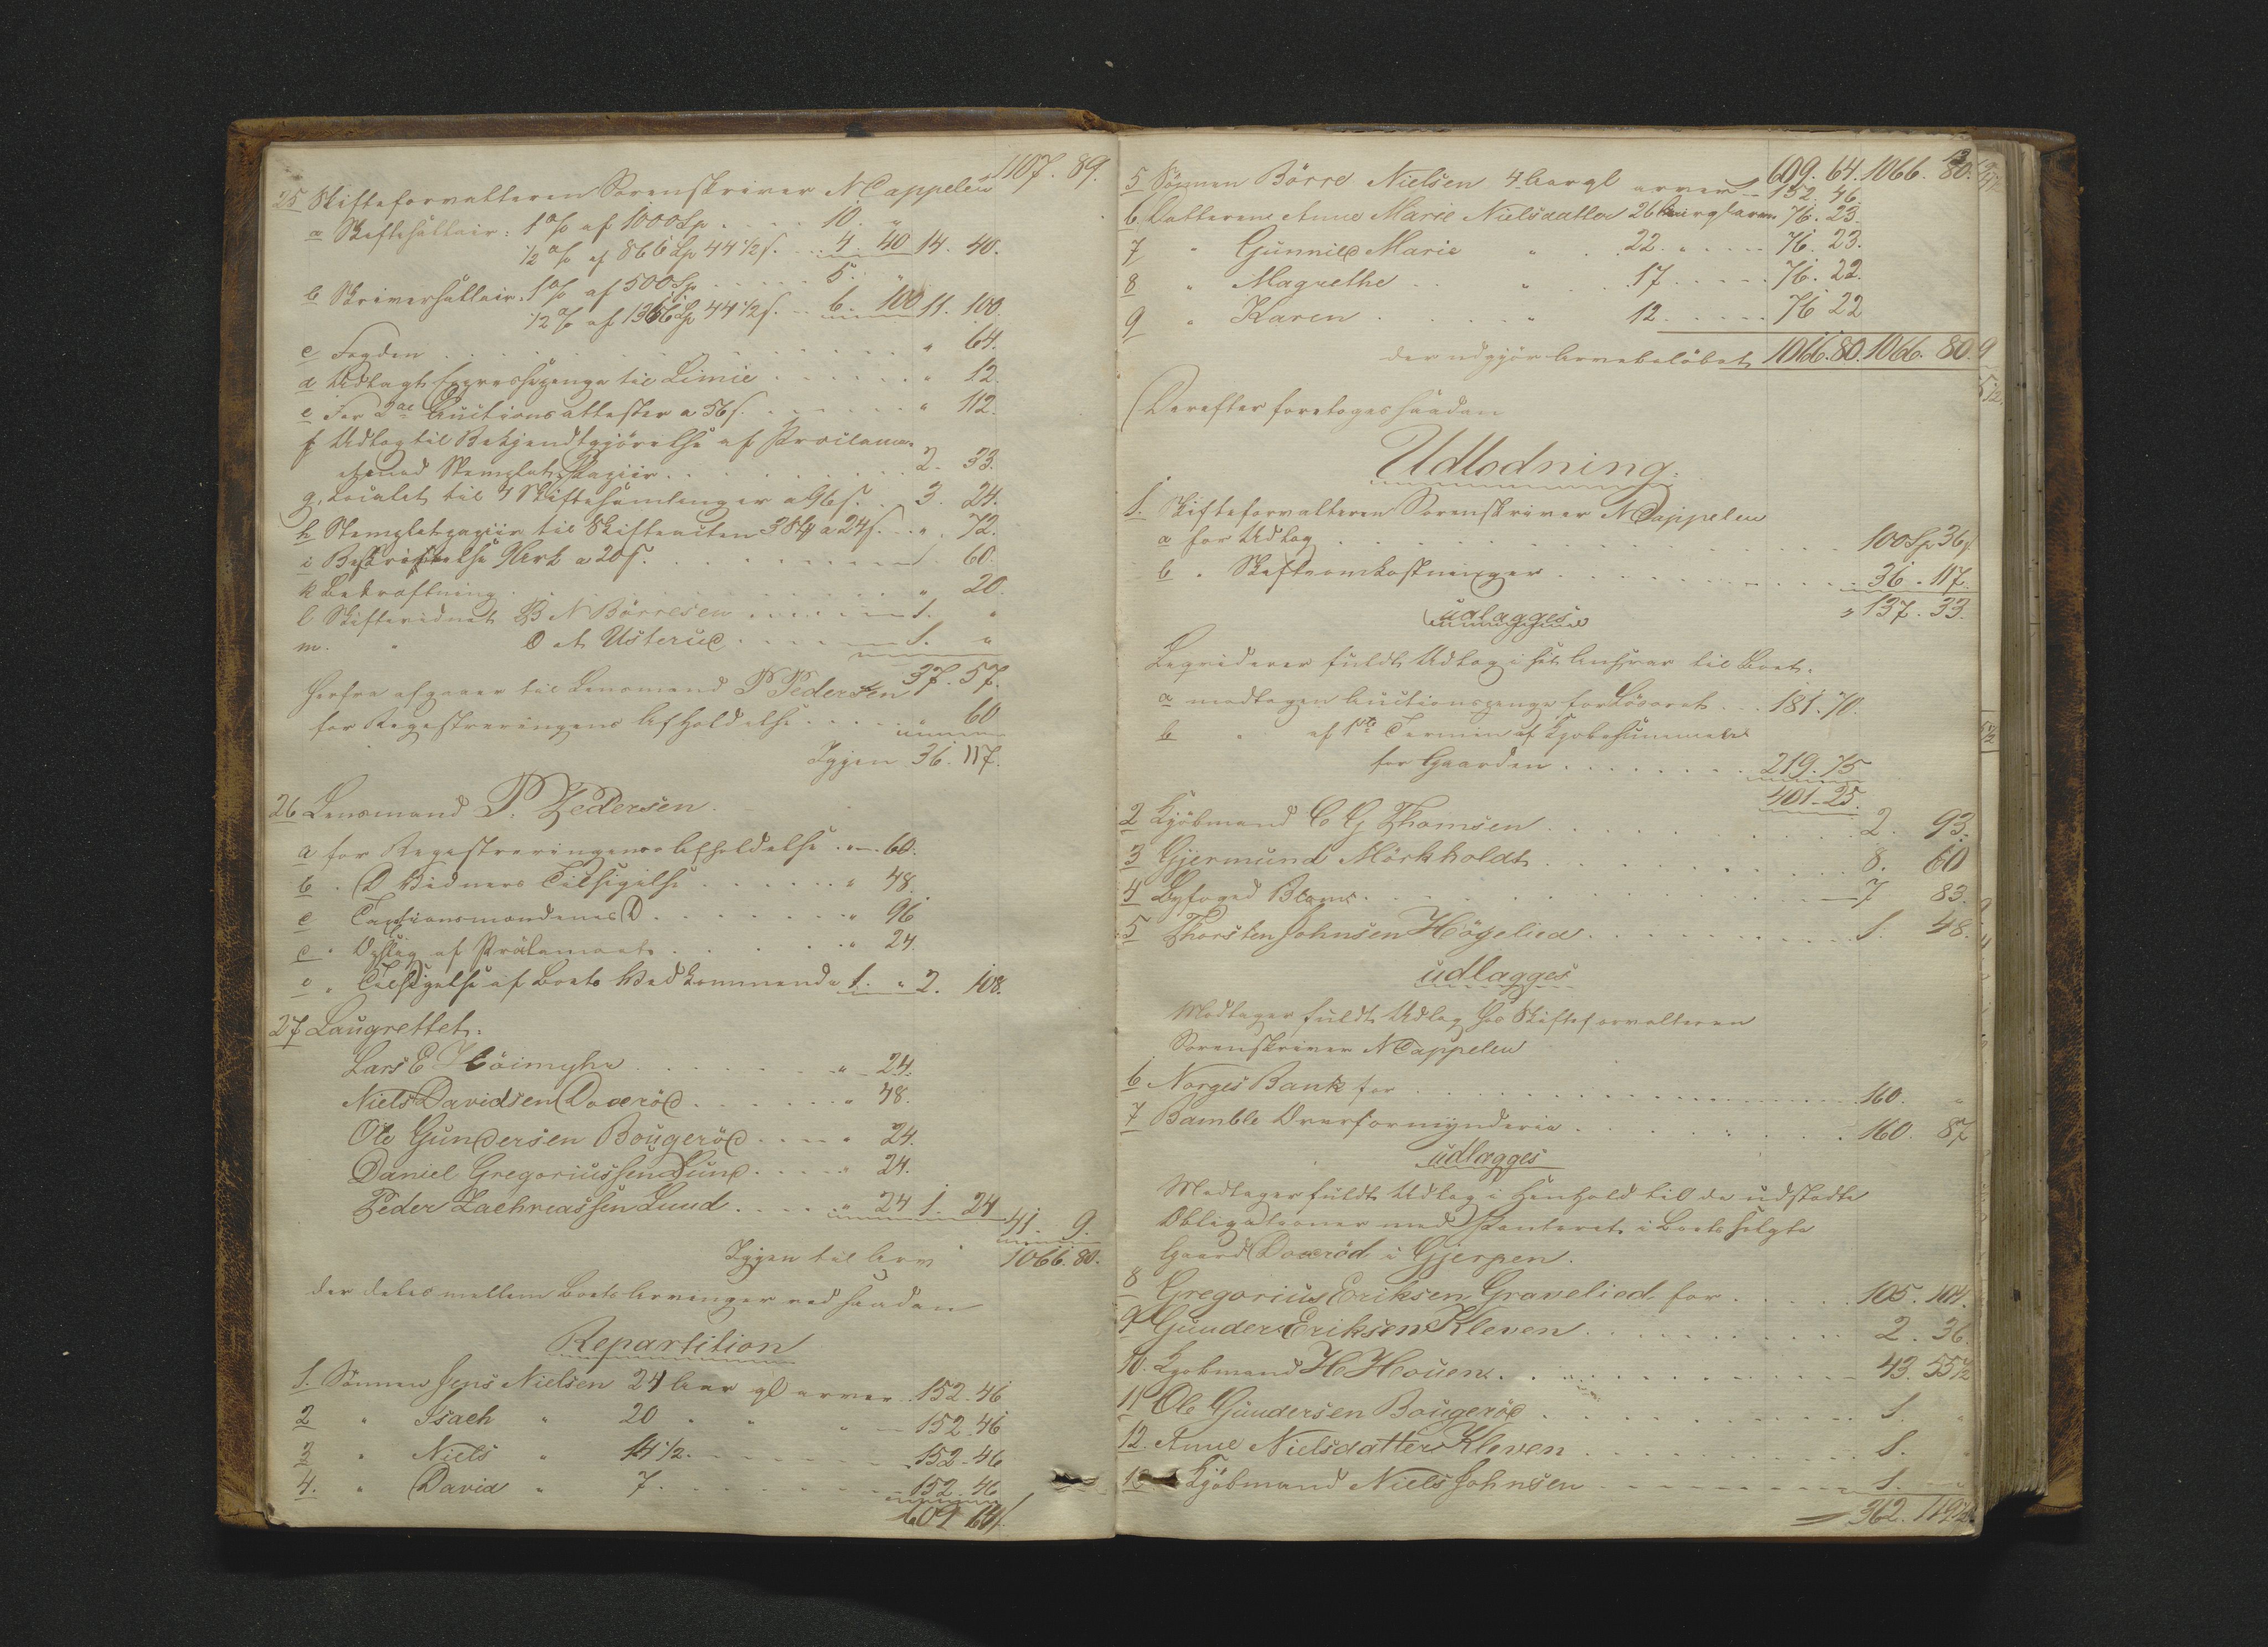 1107. 89.
25 Skifteforvalteren Sorenskriver N Cappelen
a Skiftesallair: 1 % af 1000 Sp . . . 10. "
1/2 % af 866 Sp 44 1/2 s. . . 4. 40 14. 40.
b Skriversallair. 1 % af 500 Sp . . . 5. "
1/2 % af 1366 Sp 44 1/2 s. . . 6. 100 11. 100.
c Fogden . . . " 64.
d Udlagt Expressepenge til Limie . . . " 12.
e For 2de Auctionsattester a 56 s. . . . " 112.
f Udlag til Bekjendtgjørelse af Proclama
med Stemplet Papiir . . . 2. 33.
g. Localet til 4 Skiftesamlinger a 96 s. . 3. 24.
h Stempletpapiir til Skifteacten 3 Stk a 24 s. . . " 72.
i Beskrivelse Ark a 20 s. . . . 60.
k Bekræftning . . . " 20.
l Skiftevidnet B N Börresen . . . 1. "
m. " O A Usterud . . . 1. "
37. 57.
Herfra afgaaer til Lensmand P Pedersen
for Registreringens Afholdelse . . . " 60
Igjen 36. 117.
26 Lensmand P. Pedersen.
a for Registreringens Afholdelse . " 60.
b . D Vidners Tilsigelse . . . " 48.
c Taxtionsmændenes D . . . " 96
d . Opslag af Proclamaet . . . " 24.
e . Tilsigelse af Boets Vedkommende 1. " 2. 108.
27 Laugrettet.
Lars E Höimyhr . . . " 24.
Niels Davidsen Doxröd . . . " 48.
Ole Gundersen Bougeröd . . . " 24.
Daniel Gregoriussen Lund . . . " 24.
Peder Zachriassen Lund . . . " 24 1. 24 41. 9.
Igjen til Arv 1066. 80.
der deles mellem Boets Arvinger ved saadan
Repartition
1. Sönnen Jens Nielsen 24 Aar gl arver . 152. 46
2 " Isach " 20 " " " 152. 46
3 " Niels " 14 1/2 . . . 152. 46
4. " David " 7 . . . 152. 46
609 64
13
609. 64. 1066. 80.
5 Sönnen Börre Nielsen 4 Aar gl arver 152. 46.
6 Datteren Anne Marie Nielsdatter 26 Aar gl arver 76. 23.
7 " Gunnild Marie " 22 . " . . . 76. 23.
8 " Magrethe . . " . 17 . . . 76. 22.
9 " Karen . . . " 12 . . . 76 22
der udgjör Arvebelöbet 1066. 80. 1066. 80
Derefter foretoges saadan
Udlodning.
1. Skifteforvalteren Sorenskriver N Cappelen
a for Udlag . . . 100 Sp 36 s
b . Skifteomkostninger . . . 36. 117.
" 137. 33.
udlægges
Beregner fuldt Udlag i sit Ansvar til Boet.
a modtagen Auctionspenge for Lösöret . . . 181. 70.
b " af 1ste Termin af Kjøbesummen
for Gaarden . . . 219. 75
401. 25.
2 Kjöbmand C G Thomsen . . . 2. 93.
3 Gjermund Mörkholdt . . . 8. 60
4 Byfoged Blom . . . 7 83.
5 Thorsten Johnsen Högelied . . . 1. 48.
udlægges
Modtager fuldt Udlæg hos Skifteforvalteren
Sorenskriver N Cappelen
6 Norges Bank for . . . 160. "
7 Bamble Overformynderie . . . 160. 87
udlægges
Modtager fuldt Udlæg i Henhold til de udstædte
Obligationer med Panteret i Boets solgte
Gaard Doxröd i Gjerpen.
8 Gregorius Eriksen Gravelied for . . . 105. 104.
9 Gunder Eriksen Kleven . . . 2. 36.
10. Kjöbmand H Houen . . . 43. 55 1/2
11 Ole Gundersen Bougeröd . . . 1. "
12. Anne Nielsdatter Kleven . . . 1. "
13 Kjöbmand Niels Johnsen . . . 1. "
362. 119 1/2